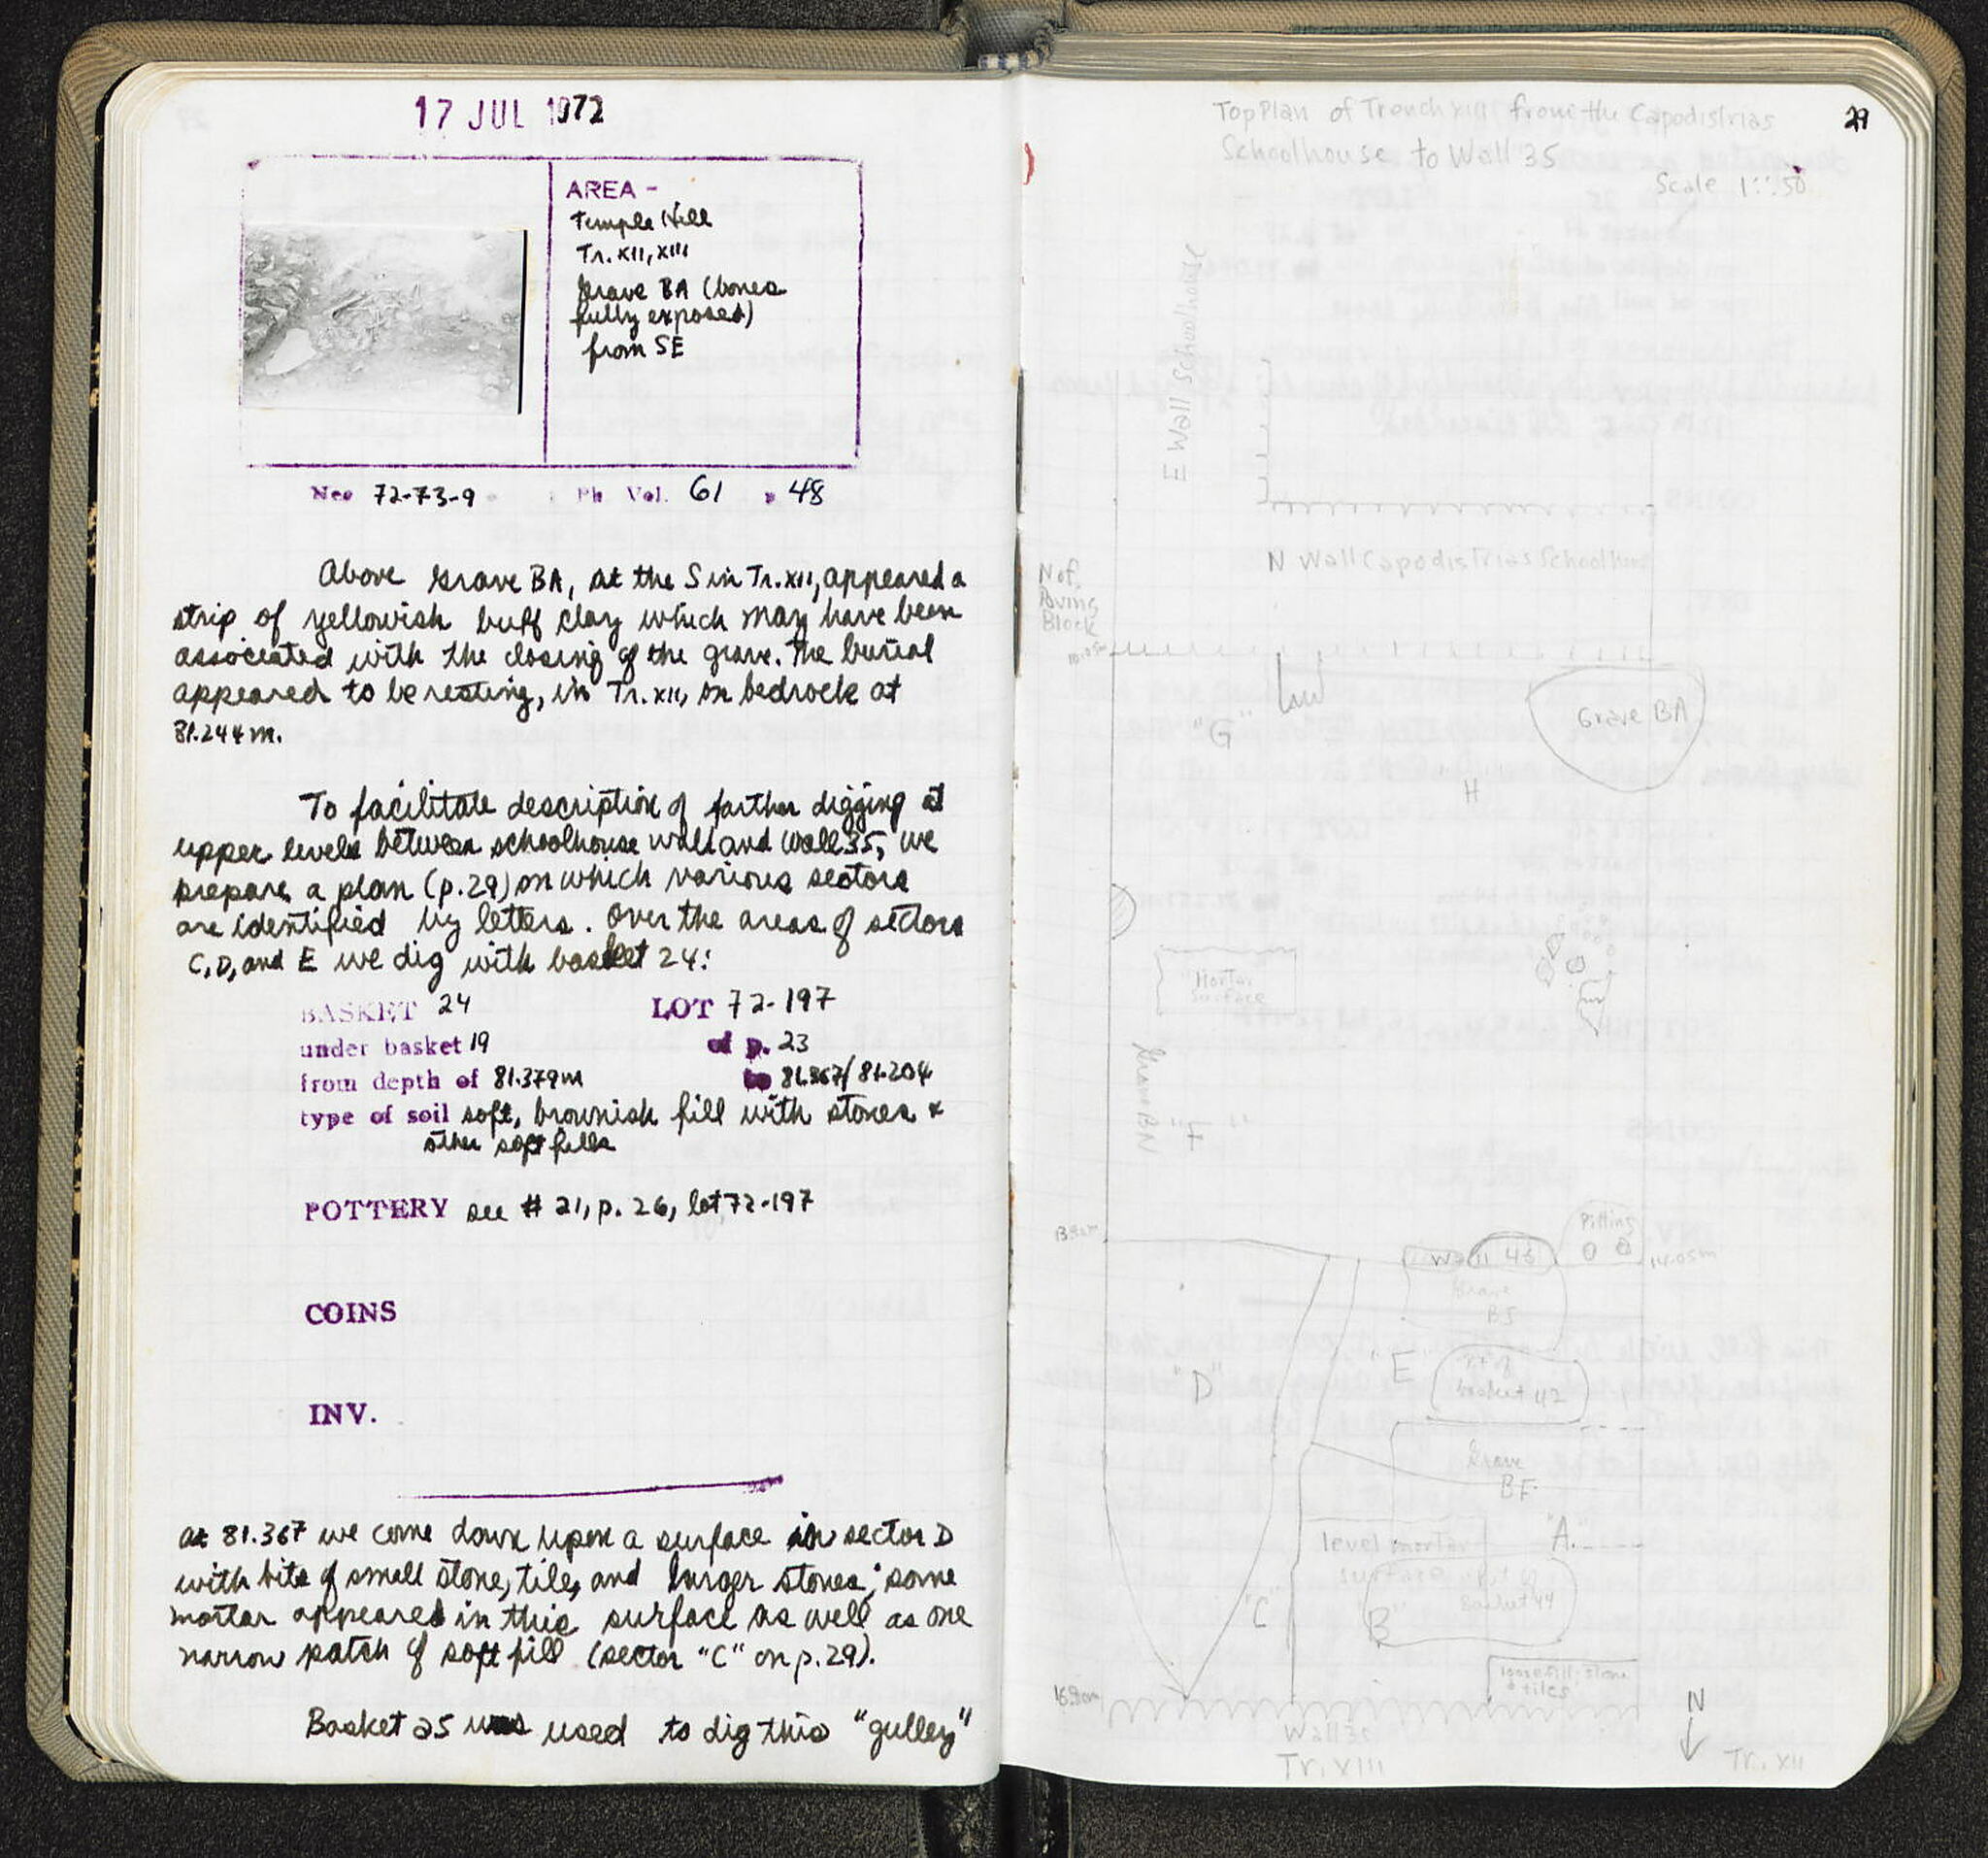 17 JUL 1972
AREA -
Temple Hill
Tr. XII, XIII
Grave BA (bones
fully exposed)
from SE
Neg 72-73-9 Ph Vol. 61 p 48
Above Grave BA, at the S in Tr. XII, appeared a
strip of yellowish buff clay which may have been
associated with the closing of the grave. The burial
appeared to be resting, in Tr. XII, on bedrock at
81.244 m.
To facilitate description of further digging at
upper levels between schoolhouse wall and Wall 35, we
prepare a plan (p. 29) on which various sectors
are identified by letters. Over the areas of sectors
C, D, and E we dig with basket 24:
BASKET 24 LOT 72-197
under basket 19 of p. 23
from depth of 81.379m to 81.367/81.204
type of soil soft, brownish fill with stones &
other soft fills
POTTERY see # 21, p. 26, lot 72-197
COINS
INV.
at 81.367 we come down upon a surface in sector D
with bits of small stone, tile, and larger stones; some
mortar appeared in this surface as well as one
narrow patch of soft fill (sector "C" on p. 29).
Basket 25 was used to dig this "gulley"
29
Top Plan of Trench XIII from the Capodistrias
Schoolhouse to Wall 35
Scale 1:50
E Wall Schoolhouse
N Wall Capodistrias Schoolhouse
N of
Paving
Block
"G"
Grave BA
H
Mortar
surface
Grave BN
"F"
Pitting
Wall 46
14.05m
Grave
BS
"D"
"E
basket 42
Grave
BF
"A"
level mortar
surface
pit of
basket 44
"C"
B"
loose fill, stone
& tiles
Wall 35
N
Tr. XIII
Tr. XII